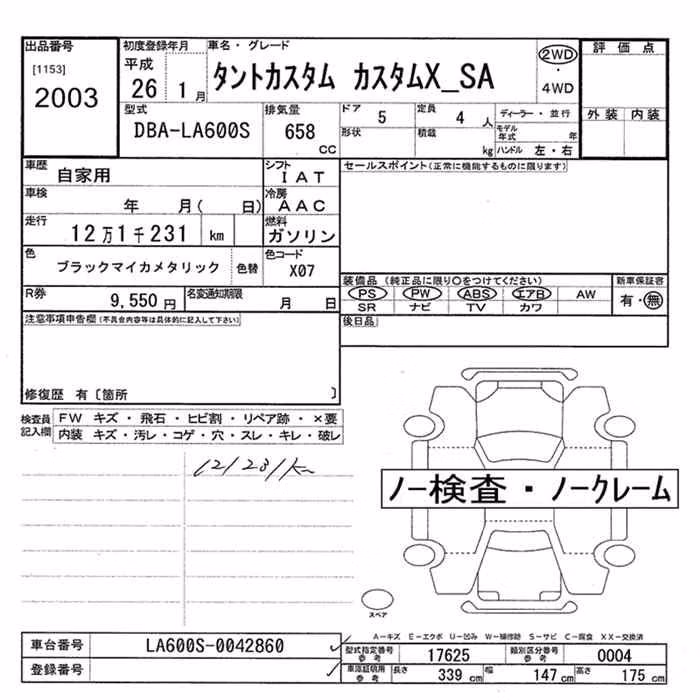 出品番号
[1153]
2003
初度登録年月
平成
26 1月
車名・グレード
タントカスタム カスタムX_SA
2WD
・
4WD
評価点
外装 内装
型式
DBA-LA600S
排気量
658
CC
ドア
5
定員
4 人
形状
積載
kg
ディーラー・並行
モデル年式 年
ハンドル 左・右
車歴
自家用
シフト
IAT
車検
年 月( 日)
冷房
AAC
走行
12万1千231 km
燃料
ガソリン
色
ブラックマイカメタリック 色替
色コード
X07
R券
9,550 円
名変通知期限
月 日
セールスポイント(正常に機能するものに限ります)
装備品 (純正品に限り○をつけてください)
PS PW ABS エアB AW
SR ナビ TV カワ
新車保証客
有・無
後日品
注意事項申告欄(不具合内容等は具体的に記入して下さい)
修復歴 有〔箇所 〕
検査員
記入欄
FW キズ・飛石・ヒビ割・リペア跡・×要
内装 キズ・汚レ・コゲ・穴・スレ・キレ・破レ
121231km
ノー検査・ノークレーム
スペア
A-キズ E-エクボ U-凹み W-補修跡 S-サビ C-腐食 XX-交換済
車台番号
LA600S-0042860
登録番号
型式指定番号
参考
17625
類別区分番号
参考
0004
車庫証明用
参考
長さ
339 cm
幅
147 cm
高さ
175 cm